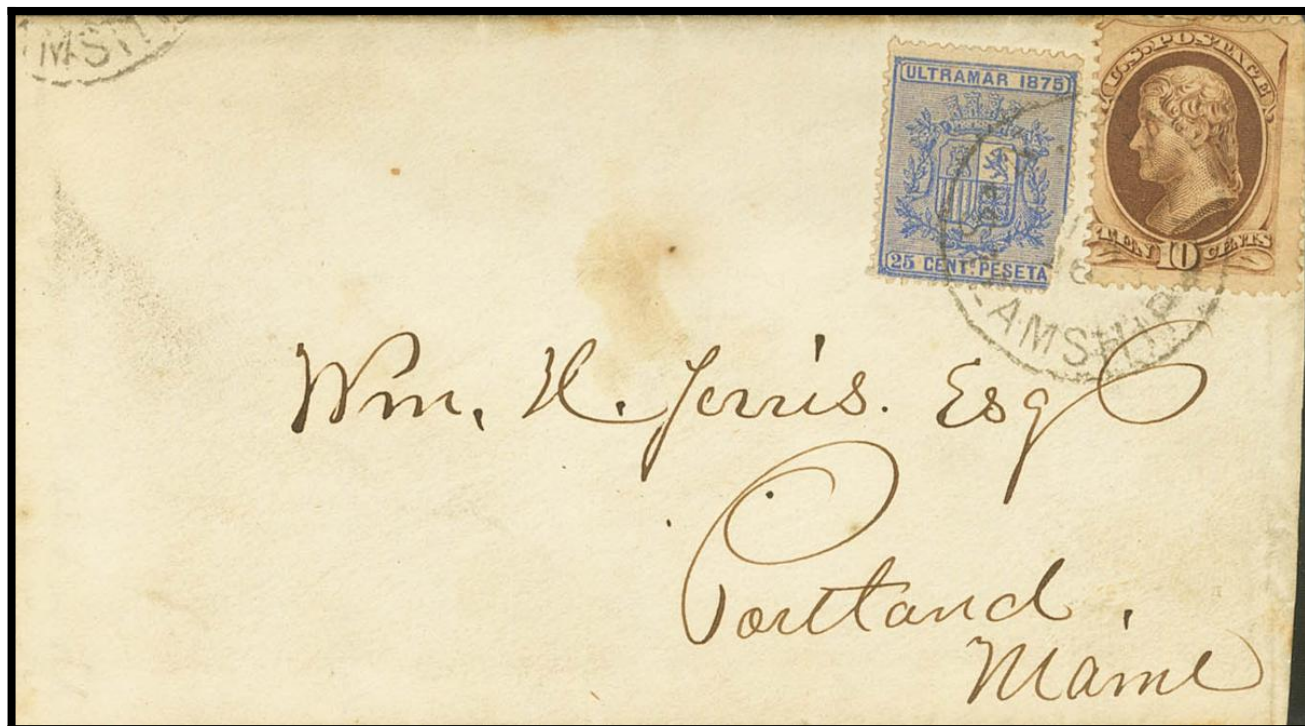 ULTRAMAR 1875
25 CENT. PESETA
U.S. POSTAGE
TEN 10 CENTS
AMSHIP
Wm. H. Jerris. Esq
Portland,
Maine